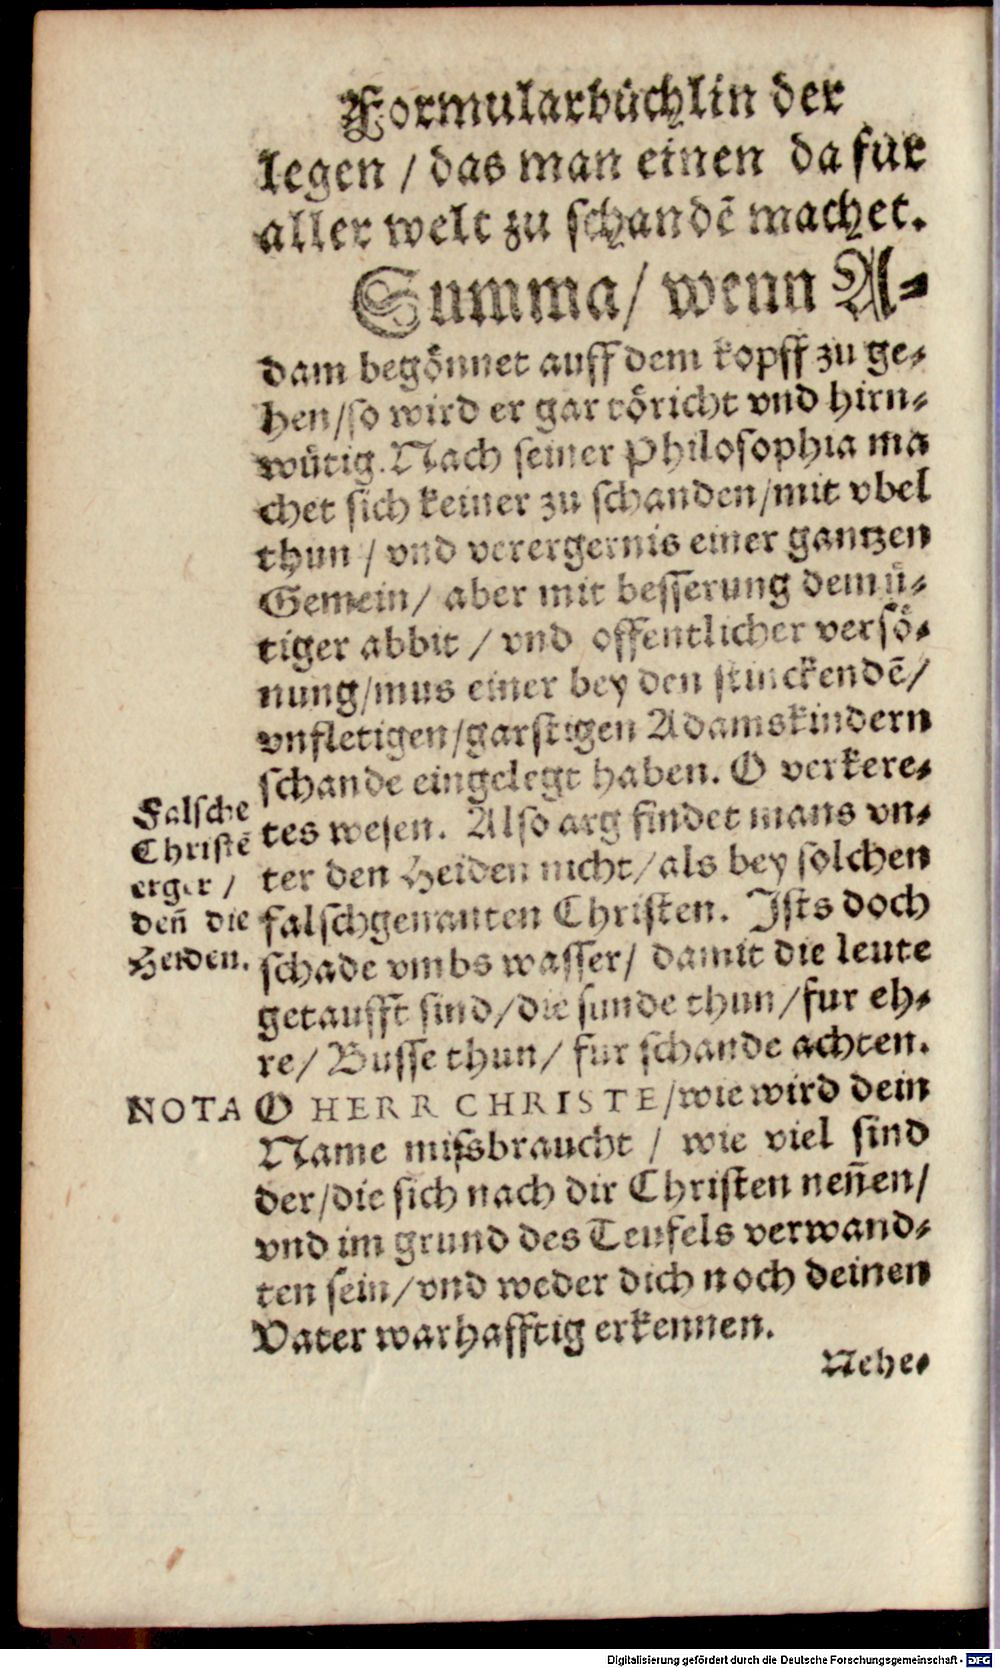 Formularbüchlin der
legen / das man einen da fur
aller welt zu schandē machet.
Summa / wenn A-
dam begönnet auff dem kopff zu ge-
hen / so wird er gar töricht vnd hirn-
wütig. Nach seiner Philosophia ma
chet sich keiner zu schanden / mit vbel
thun / vnd verergernis einer gantzen
Gemein / aber mit besserung demü-
tiger abbit / vnd offentlicher versö-
nung / mus einer bey den stinckendē /
vnfletigen / garstigen Adamskindern
schande eingelegt haben. O verkere-
tes wesen. Also arg findet mans vn-
ter den Heiden nicht / als bey solchen
falschgenanten Christen. Ists doch
schade vmbs wasser / damit die leute
getaufft sind / die sunde thun / fur eh-
re / Busse thun / fur schande achten.
O HERR CHRISTE / wie wird dein
Name missbraucht / wie viel sind
der / die sich nach dir Christen neñen /
vnd im grund des Teufels verwand-
ten sein / vnd weder dich noch deinen
Vater warhafftig erkennen.
Nehe-
Falsche
Christē
erger /
deñ die
Heiden.
NOTA
Digitalisierung gefördert durch die Deutsche Forschungsgemeinschaft - DFG